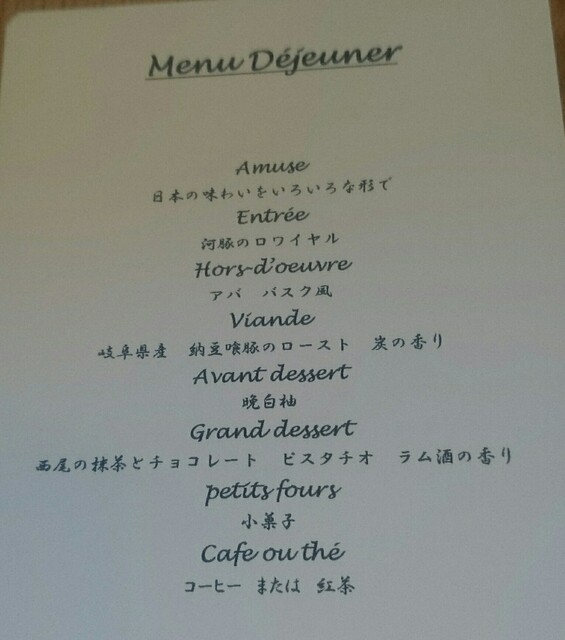 Menu Déjeuner
Amuse
日本の味わいをいろいろな形で
Entrée
河豚のロワイヤル
Hors-d'oeuvre
アバ　バスク風
Viande
岐阜県産　納豆喰豚のロースト　炭の香り
Avant dessert
晩白柚
Grand dessert
西尾の抹茶とチョコレート　ピスタチオ　ラム酒の香り
petits fours
小菓子
Cafe ou thé
コーヒー　または　紅茶